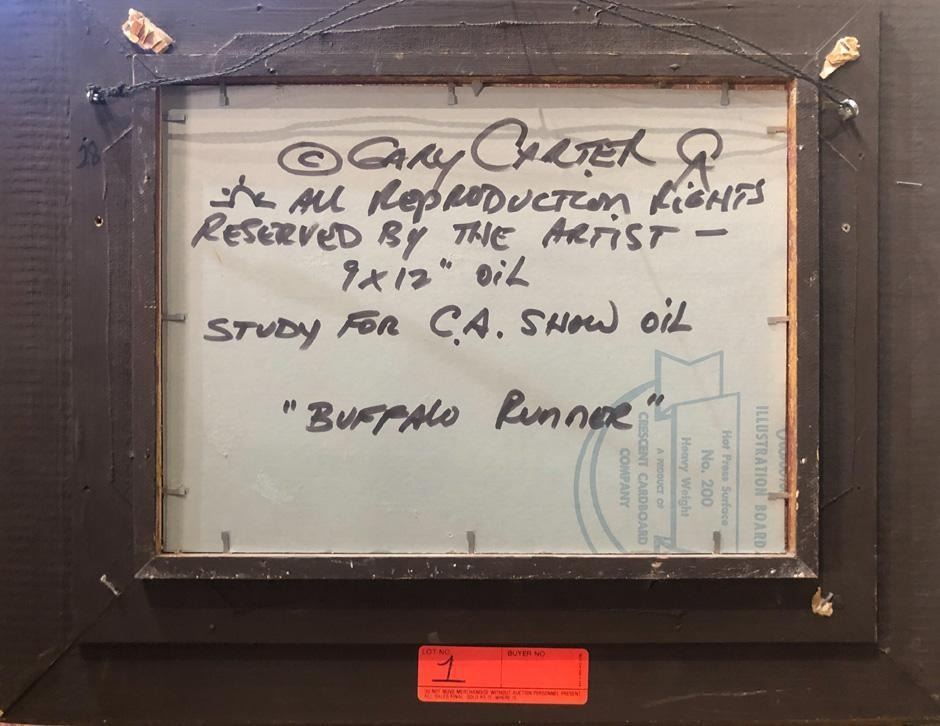 © GARY CARTER
ALL REPRODUCTION RIGHTS
RESERVED BY THE ARTIST —
9 x 12" OiL
STUDY FOR C.A. SHOW OiL
"BUFFALO RUNNER"
ILLUSTRATION BOARD
Hot Press Surface
No. 200
Heavy Weight
A PRODUCT OF
CRESCENT CARDBOARD
COMPANY
58
LOT NO.
1
BUYER NO.
DO NOT MOVE MERCHANDISE WITHOUT AUCTION PERSONNEL PRESENT
ALL SALES FINAL SOLD AS IS, WHERE IS